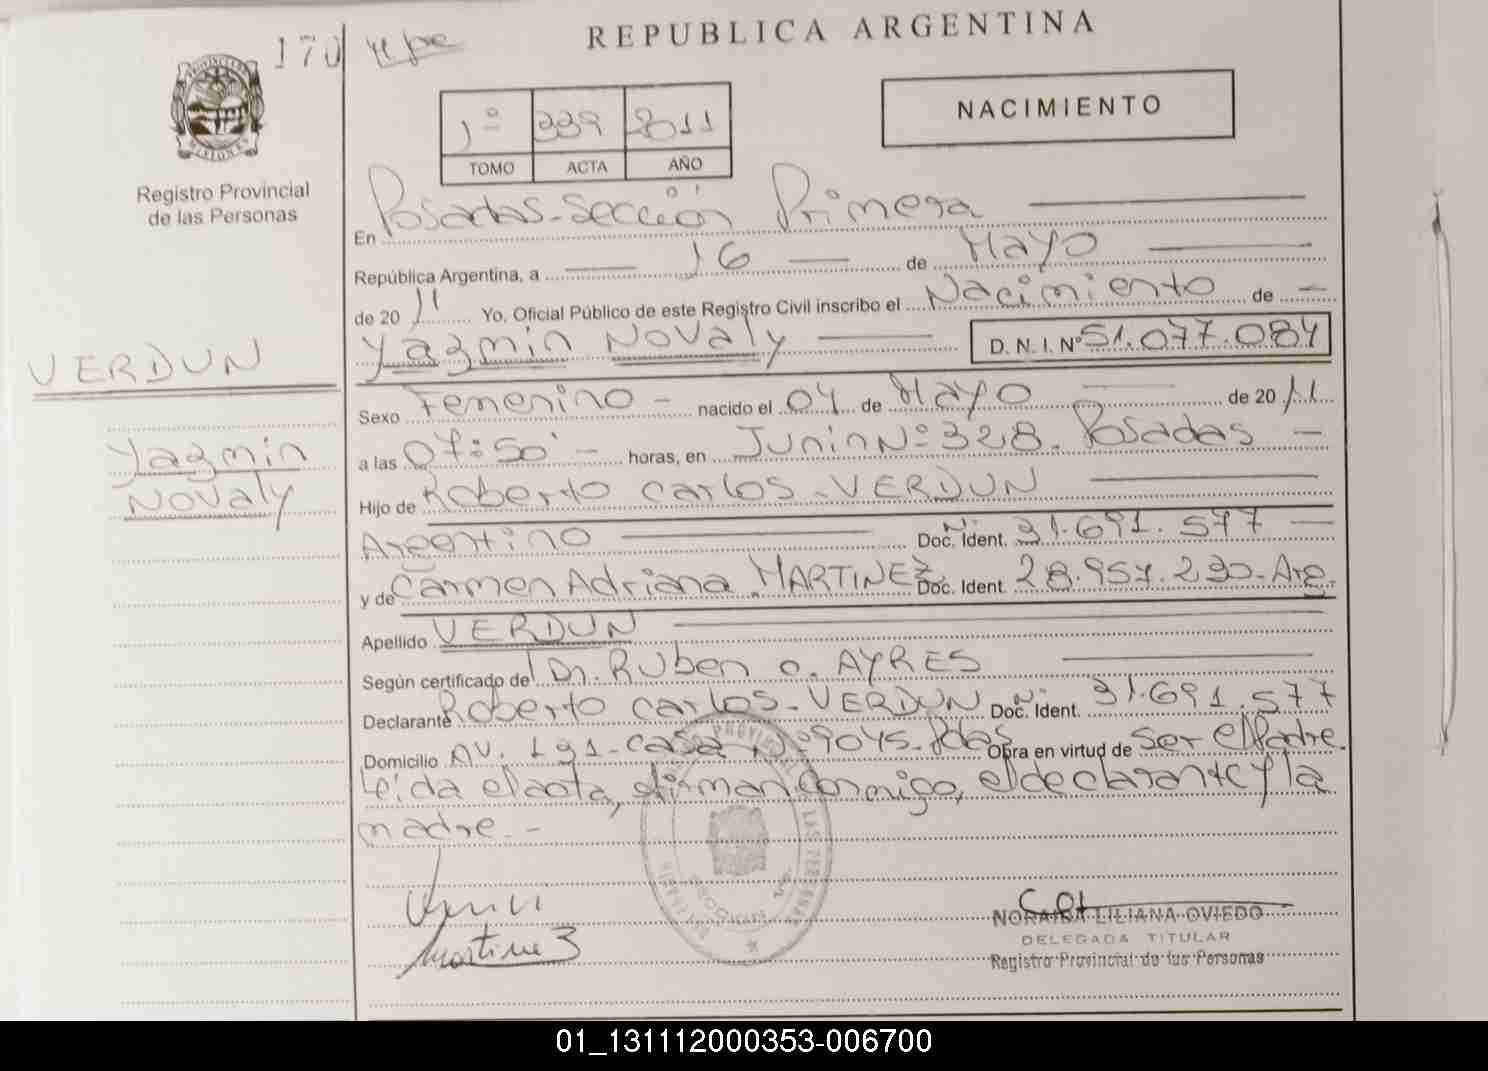 REPUBLICA ARGENTINA
170
1º 339 2011
TOMO ACTA AÑO
NACIMIENTO
PROVINCIA DE MISIONES
Registro Provincial
de las Personas
En Posadas-Sección Primera
República Argentina, a 16 de Mayo
de 2011 Yo, Oficial Público de este Registro Civil inscribo el Nacimiento de -
Yazmin Novaly D. N. I. Nº 51.077.084
VERDUN
Yazmin
Novaly
Sexo Femenino - nacido el 04 de Mayo de 2011
a las 07:50' - horas, en Junin Nº 328. Posadas -
Hijo de Roberto Carlos-VERDUN
Argentino Doc. Ident. Nº 31.691.577
y de Carmen Adriana MARTINEZ Doc. Ident. 28.957.230-Arg.
Apellido VERDUN
Según certificado de Dr. Ruben O. AYRES
Declarante Roberto Carlos-VERDUN Doc. Ident. Nº 31.691.577
Domicilio AV. 191-Casa Nº 9045-Pdas Obra en virtud de Ser el Padre.
Leída el acta, firman conmigo, el declarante y la
madre.-
Martinez
NORAIDA LILIANA OVIEDO
DELEGADA TITULAR
Registro Provincial de las Personas
01_131112000353-006700